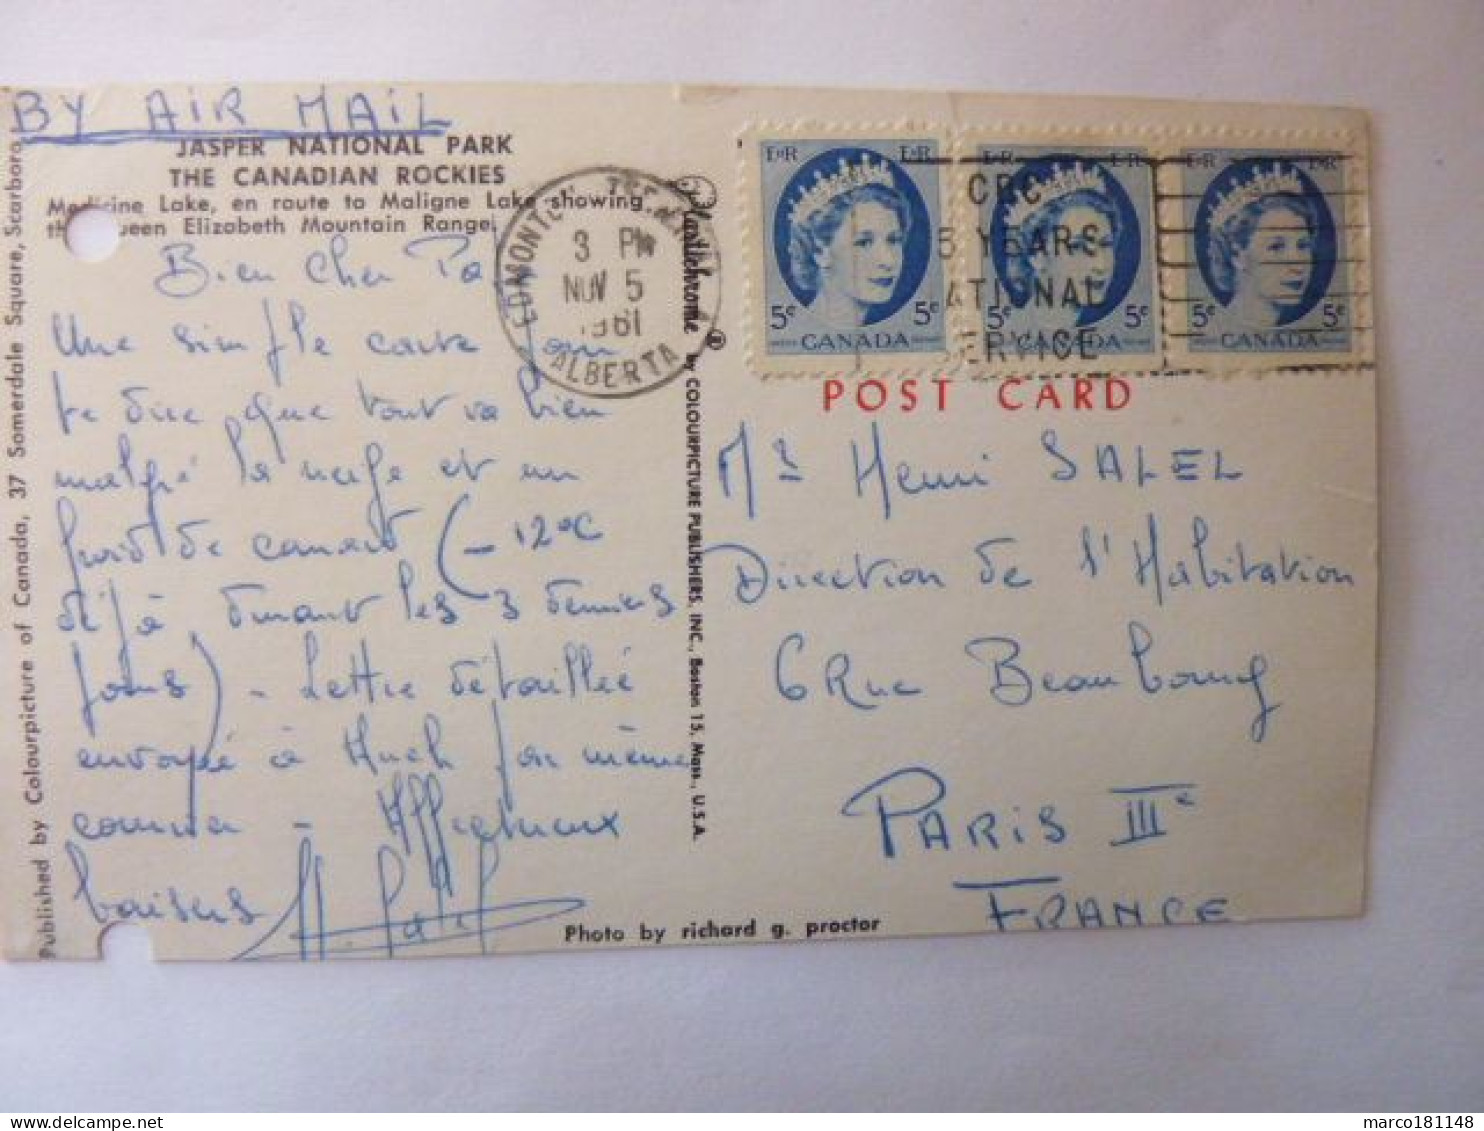 BY AIR MAIL
JASPER NATIONAL PARK
THE CANADIAN ROCKIES
Medicine Lake, en route to Maligne Lake showing
the Queen Elizabeth Mountain Range.
Bien Cher Pa
Une simple carte pour
te dire que tout va bien
malgré la neige et un
froid de canard (-12°C
déjà durant les 3 derniers
jours) - Lettre détaillée
envoyée à par même
courrier - Affectueux
baisers
Published by Colourpicture of Canada, 37 Somerdale Square, Scarboro
Plastichrome ® by COLOURPICTURE PUBLISHERS, INC., Boston 15, Mass., U.S.A.
Photo by richard g. proctor
EDMONTON
3 PM
NOV 5
1961
ALBERTA
CBC
5 YEARS
NATIONAL
SERVICE
EIIR EIIR
5c 5c
CANADA
EIIR EIIR
5c 5c
CANADA
EIIR EIIR
5c 5c
CANADA
POST CARD
Mr Henri SALEL
Direction de l'Habitation
6 Rue Beaubourg
PARIS IIIe
FRANCE
marco181148